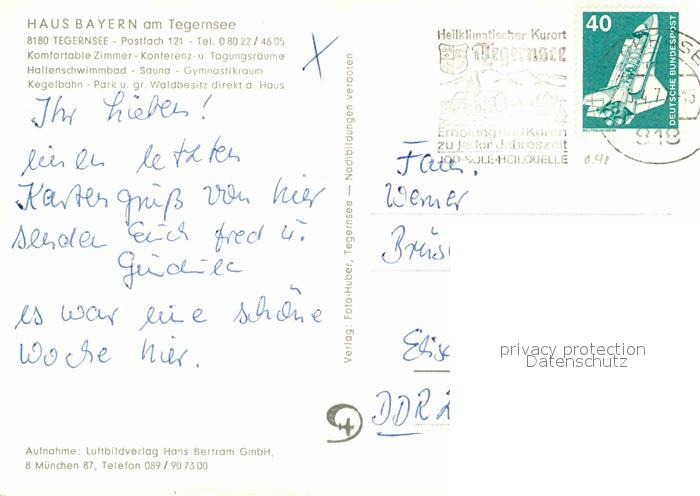 HAUS BAYERN am Tegernsee
8180 TEGERNSEE - Postfach 121 - Tel. 0 80 22 / 46 05
Komfortable Zimmer - Konferenz- u. Tagungsräume
Hallenschwimmbad - Sauna - Gymnastikraum
Kegelbahn - Park u. gr. Waldbesitz direkt a. Haus
Ihr Lieben!
einen letzten
Kartengruß von hier
senden Euch Fred u.
es war eine schöne
Woche hier.
Aufnahme: Luftbildverlag Hans Bertram GmbH,
8 München 87, Telefon 089 / 90 73 00
Verlag: Foto-Huber, Tegernsee — Nachbildungen verboten
Heilklimatischer Kurort
Tegernsee
Erholung und Kuren
zu jeder Jahreszeit
JOD-SOLE-HEILQUELLE
40
DEUTSCHE BUNDESPOST
WELTRAUMLABOR
818
0.40
Fam.
Werner
Brüs
Elise
DDR
privacy protection
Datenschutz